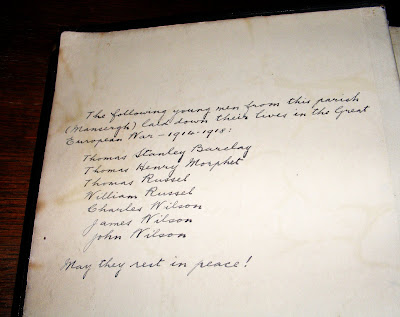 The following young men from this parish
(Mansergh) laid down their lives in the Great
European War - 1914-1918:
Thomas Stanley Barclay
Thomas Henry Morphet
Thomas Russel
William Russel
Charles Wilson
James Wilson
John Wilson
May they rest in peace!